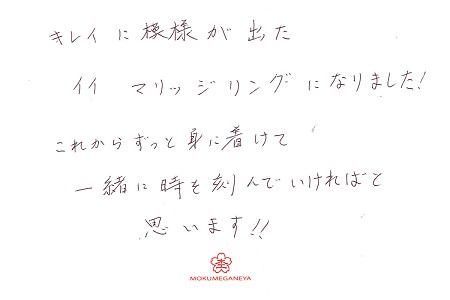 キレイに模様が出た
イイ マリッジリングになりました!
これからずっと身に着けて
一緒に時を刻んでいければと
思います!!
MOKUMEGANEYA